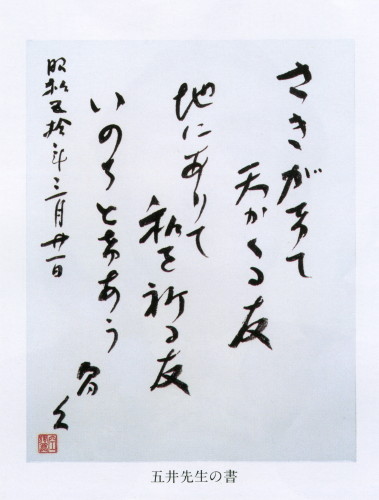 さきがけて
天かくる友
地にありて
和を祈る友
いのちとけあう
昌久
昭和五拾年三月廿一日
五井先生の書